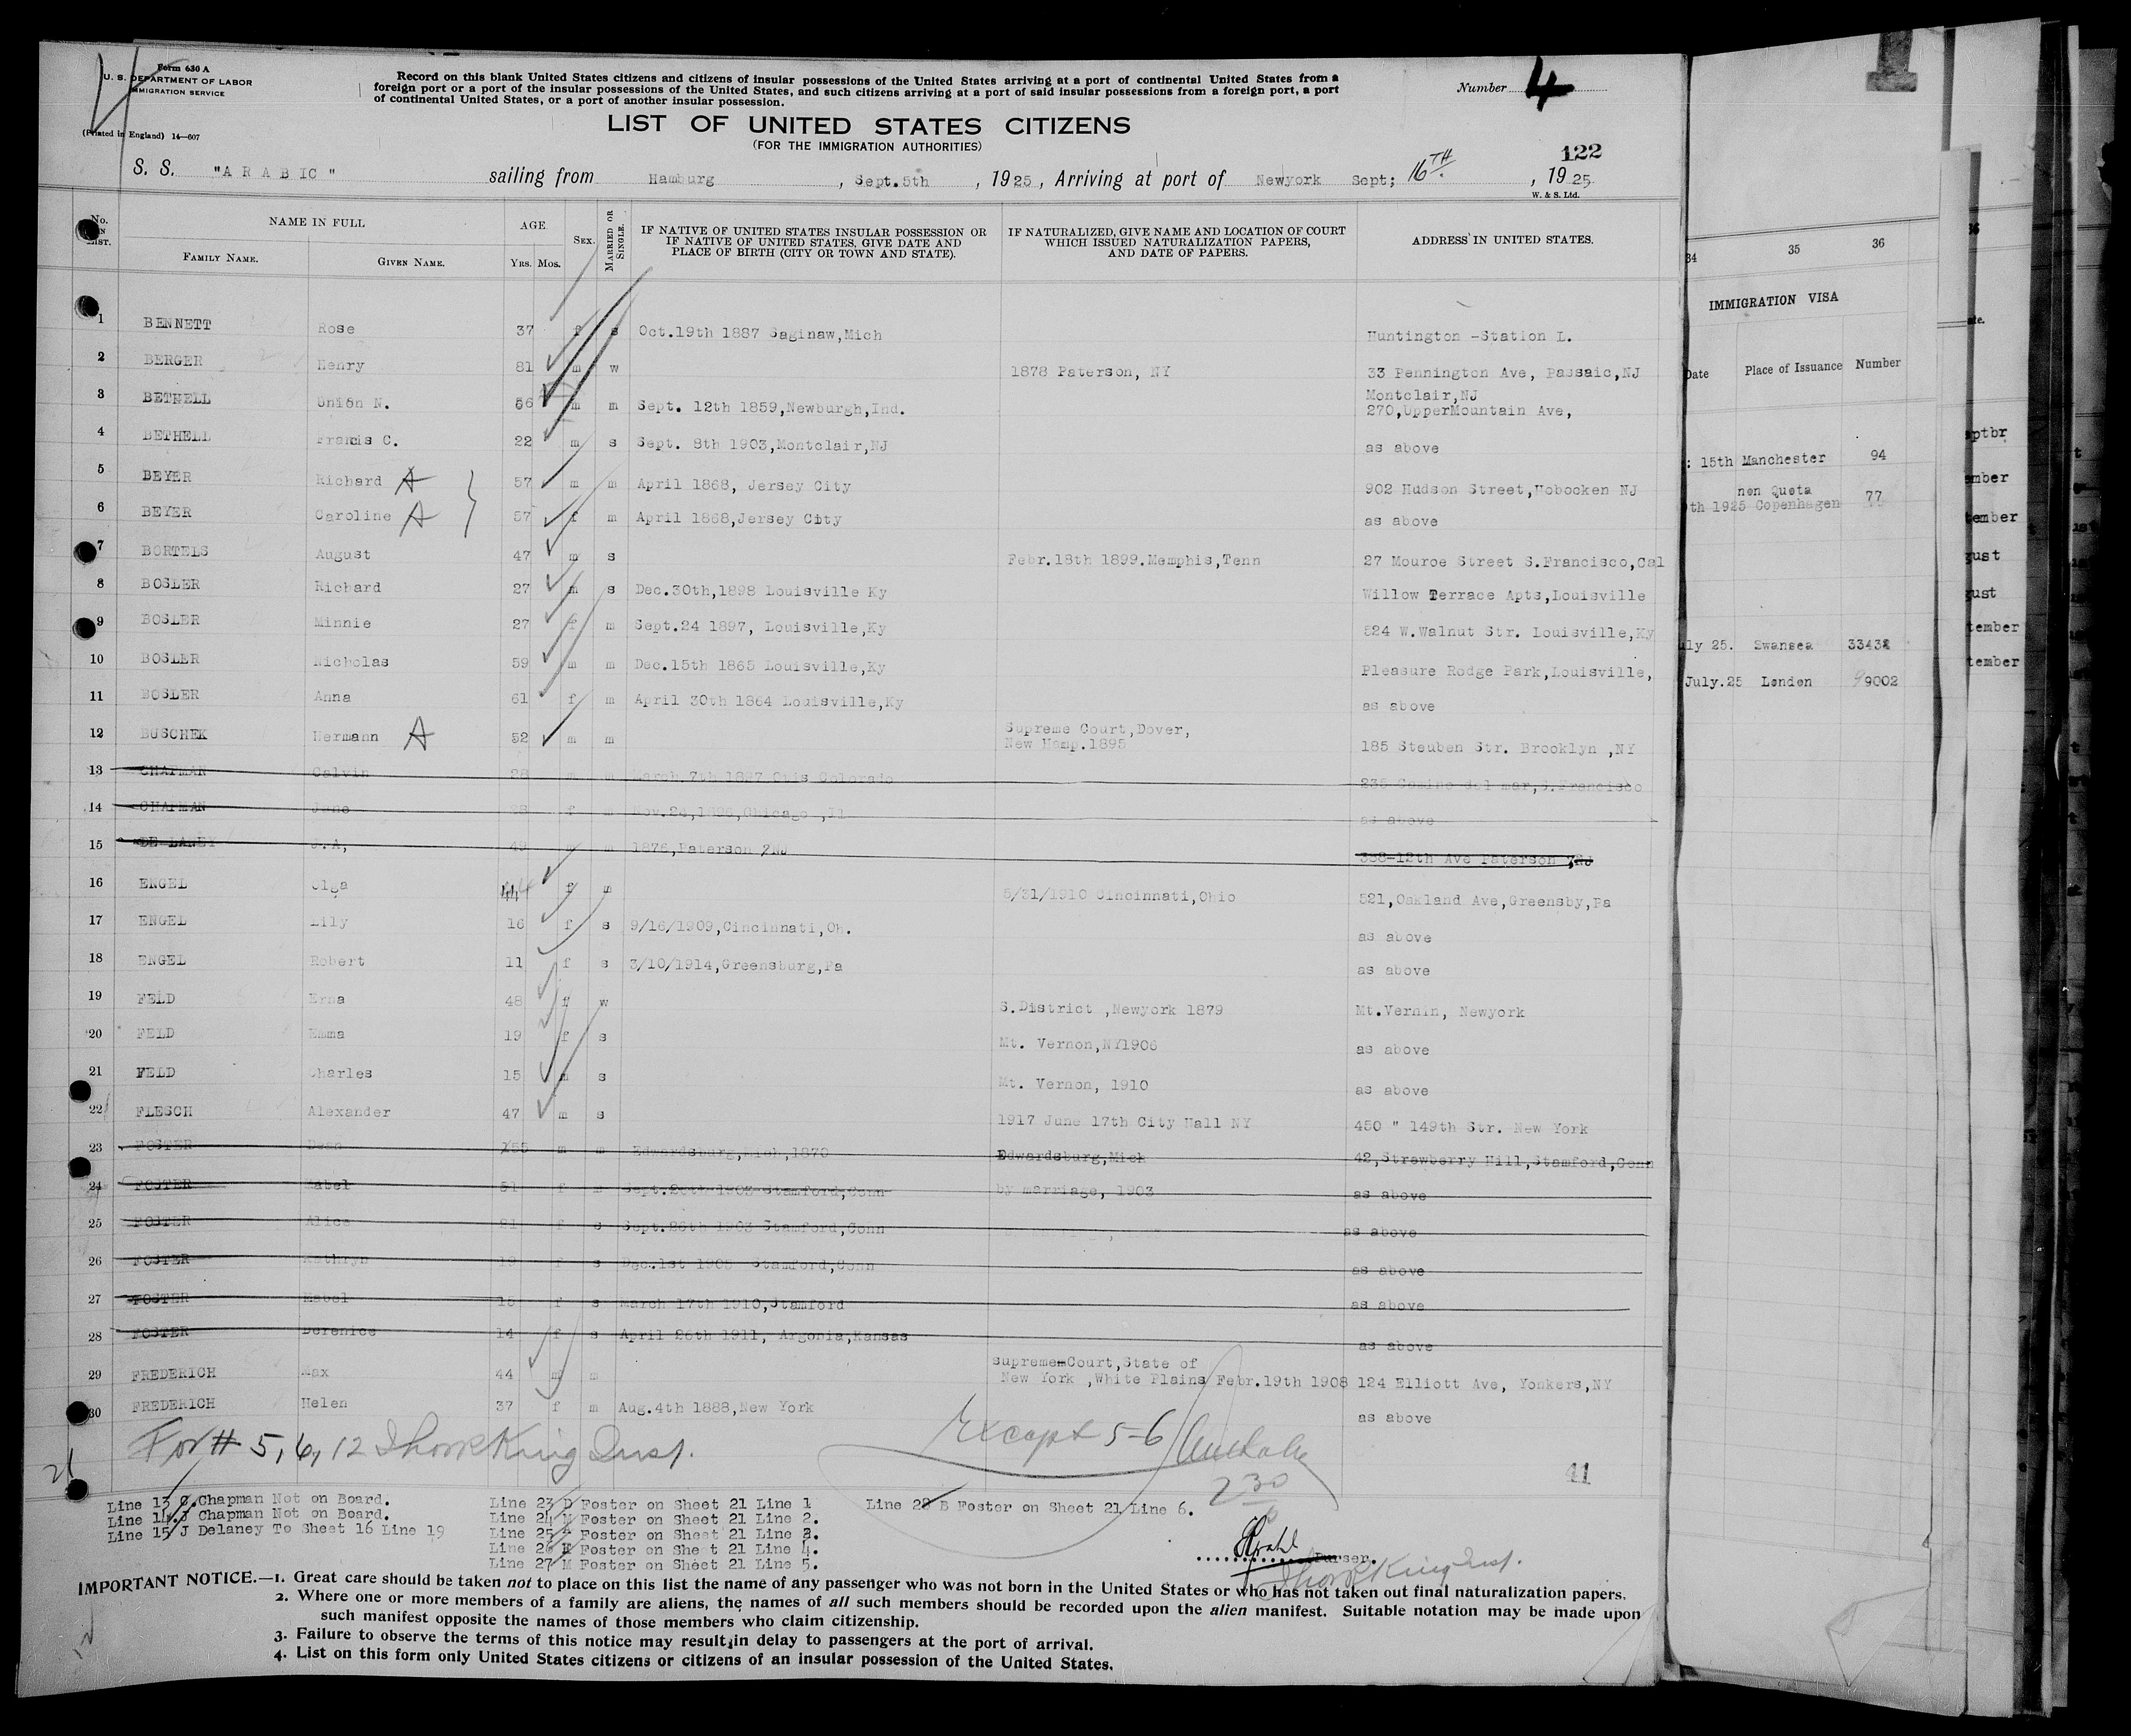 Form 630 A
U. S. DEPARTMENT OF LABOR
IMMIGRATION SERVICE
(Printed in England) 14—607
Record on this blank United States citizens and citizens of insular possessions of the United States arriving at a port of continental United States from a
foreign port or a port of the insular possessions of the United States, and such citizens arriving at a port of said insular possessions from a foreign port, a port
of continental United States, or a port of another insular possession.
Number 4
LIST OF UNITED STATES CITIZENS
(FOR THE IMMIGRATION AUTHORITIES)
122
S. S. "A R A B IC " sailing from Hamburg , Sept.5th , 1925, Arriving at port of Newyork Sept; 16TH , 1925
W. & S. Ltd.
No. IN LIST. NAME IN FULL AGE SEX. MARRIED OR SINGLE. IF NATIVE OF UNITED STATES INSULAR POSSESSION OR IF NATIVE OF UNITED STATES, GIVE DATE AND PLACE OF BIRTH (CITY OR TOWN AND STATE). IF NATURALIZED, GIVE NAME AND LOCATION OF COURT WHICH ISSUED NATURALIZATION PAPERS, AND DATE OF PAPERS. ADDRESS IN UNITED STATES.
FAMILY NAME. GIVEN NAME. YRS. MOS.
1 BENNETT Rose 37 f s Oct.19th 1887 Saginaw,Mich Huntington -Station L.
2 BERGER Henry 81 m w 1878 Paterson, NY 33 Pennington Ave, Passaic,NJ
3 BETHELL Union N. 66 m m Sept. 12th 1859,Newburgh,Ind. Montclair,NJ
270,UpperMountain Ave,
4 BETHELL Francis C. 22 m s Sept. 8th 1903,Montclair,NJ as above
5 BEYER Richard A 57 m m April 1868, Jersey City 902 Hudson Street,Hobocken NJ
6 BEYER Caroline A 57 f m April 1868,Jersey City as above
7 BORTELS August 47 m s Febr.18th 1899.Memphis,Tenn 27 Mouroe Street S.Francisco,Cal
8 BOSLER Richard 27 m s Dec.30th,1898 Louisville Ky Willow Terrace Apts,Louisville
9 BOSLER Minnie 27 f m Sept.24 1897, Louisville,Ky 524 W.Walnut Str. Louisville,Ky
10 BOSLER Nicholas 59 m m Dec.15th 1865 Louisville,Ky Pleasure Rodge Park,Louisville,
11 BOSLER Anna 61 f m April 30th 1864 Louisville,Ky as above
12 BUSCHEK Hermann A 52 m m Supreme Court,Dover,
New Hamp.1895 185 Steuben Str. Brooklyn ,NY
13 CHAPMAN Calvin 28 m m March 7th 1897 Otis Colorado 235 Camino del mar,S.Francisco
14 CHAPMAN Jane 28 f m Nov.24,1896,Chicago ,Il as above
15 DE LANEY J.A, 49 m m 1876,Paterson ,NJ 358-12th Ave Paterson ,NJ
16 ENGEL Olga 44 f m 5/31/1910 Cincinnati,Ohio 521,Oakland Ave,Greensby,Pa
17 ENGEL Lily 16 f s 9/16/1909,Cincinnati,Oh. as above
18 ENGEL Robert 11 f s 3/10/1914,Greensburg,Pa as above
19 FELD Erna 48 f w S.District ,Newyork 1879 Mt.Vernin, Newyork
20 FELD Emma 19 f s Mt. Vernon,NY1906 as above
21 FELD Charles 15 m s Mt. Vernon, 1910 as above
22 FLESCH Alexander 47 m s 1917 June 17th City Hall NY 450 " 149th Str. New York
23 FOSTER Dean 55 m m Edwardsburg,Mich,1870 Edwardsburg,Mich 42,Strawberry Hill,Stamford,Conn
24 FOSTER Mabel 51 f m Sept.26th 1903 Stamford,Conn by marriage, 1903 as above
25 FOSTER Alice 21 f s Sept.26th 1903 Stamford,Conn as above
26 FOSTER Kathryn 19 f s Dec.1st 1905 Stamford,Conn as above
27 FOSTER Mabel 15 f s March 17th 1910,Stamford as above
28 FOSTER Berenice 14 f s April 26th 1911, Argonia,Kansas as above
29 FREDERICH Max 44 m m supreme Court,State of
New York ,White Plains Febr.19th 1908 124 Elliott Ave, Yonkers,NY
30 FREDERICH Helen 37 f m Aug.4th 1888,New York as above
For # 5, 6, 12 Thom King Insp.
Except 5-6
230
41
Line 13 C.Chapman Not on Board.
Line 14.J Chapman Not on Board.
Line 15 J Delaney To Sheet 16 Line 19
Line 23 D Foster on Sheet 21 Line 1
Line 24 M Foster on Sheet 21 Line 2.
Line 25 Foster on Sheet 21 Line 3.
Line 26 K Foster on Sheet 21 Line 4.
Line 27 M Foster on Sheet 21 Line 5.
Line 28 B Foster on Sheet 21 Line 6.
Purser.
Thom King Insp.
IMPORTANT NOTICE.—1. Great care should be taken not to place on this list the name of any passenger who was not born in the United States or who has not taken out final naturalization papers.
2. Where one or more members of a family are aliens, the names of all such members should be recorded upon the alien manifest. Suitable notation may be made upon
such manifest opposite the names of those members who claim citizenship.
3. Failure to observe the terms of this notice may result in delay to passengers at the port of arrival.
4. List on this form only United States citizens or citizens of an insular possession of the United States.
34 35 36
IMMIGRATION VISA
Date Place of Issuance Number
: 15th Manchester 94
non Quota
th 1925 Copenhagen 77
uly 25. Swansea 33438
July.25 London 99002
ptbr
ember
tember
gust
gust
tember
tember